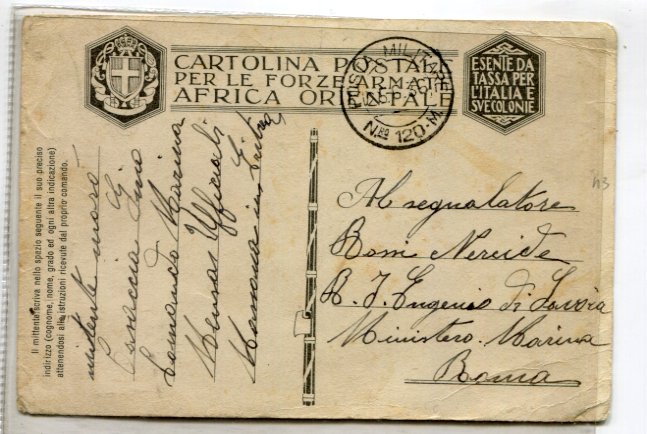 CARTOLINA POSTALE
PER LE FORZE ARMATE
AFRICA ORIENTALE
ESENTE DA
TASSA PER
L'ITALIA E
SVE COLONIE
POSTA MILITARE
NRO 120·M.
Il mittente scriva nello spazio seguente il suo preciso
indirizzo (cognome, nome, grado ed ogni altra indicazione)
attenendosi alle istruzioni ricevute dal proprio comando.
mittente
Comando Marina
Mensa Ufficiali
Massaua
Al segnalatore
Boni Nereide
R. I. Eugenio di Savoia
Ministero Marina
Roma